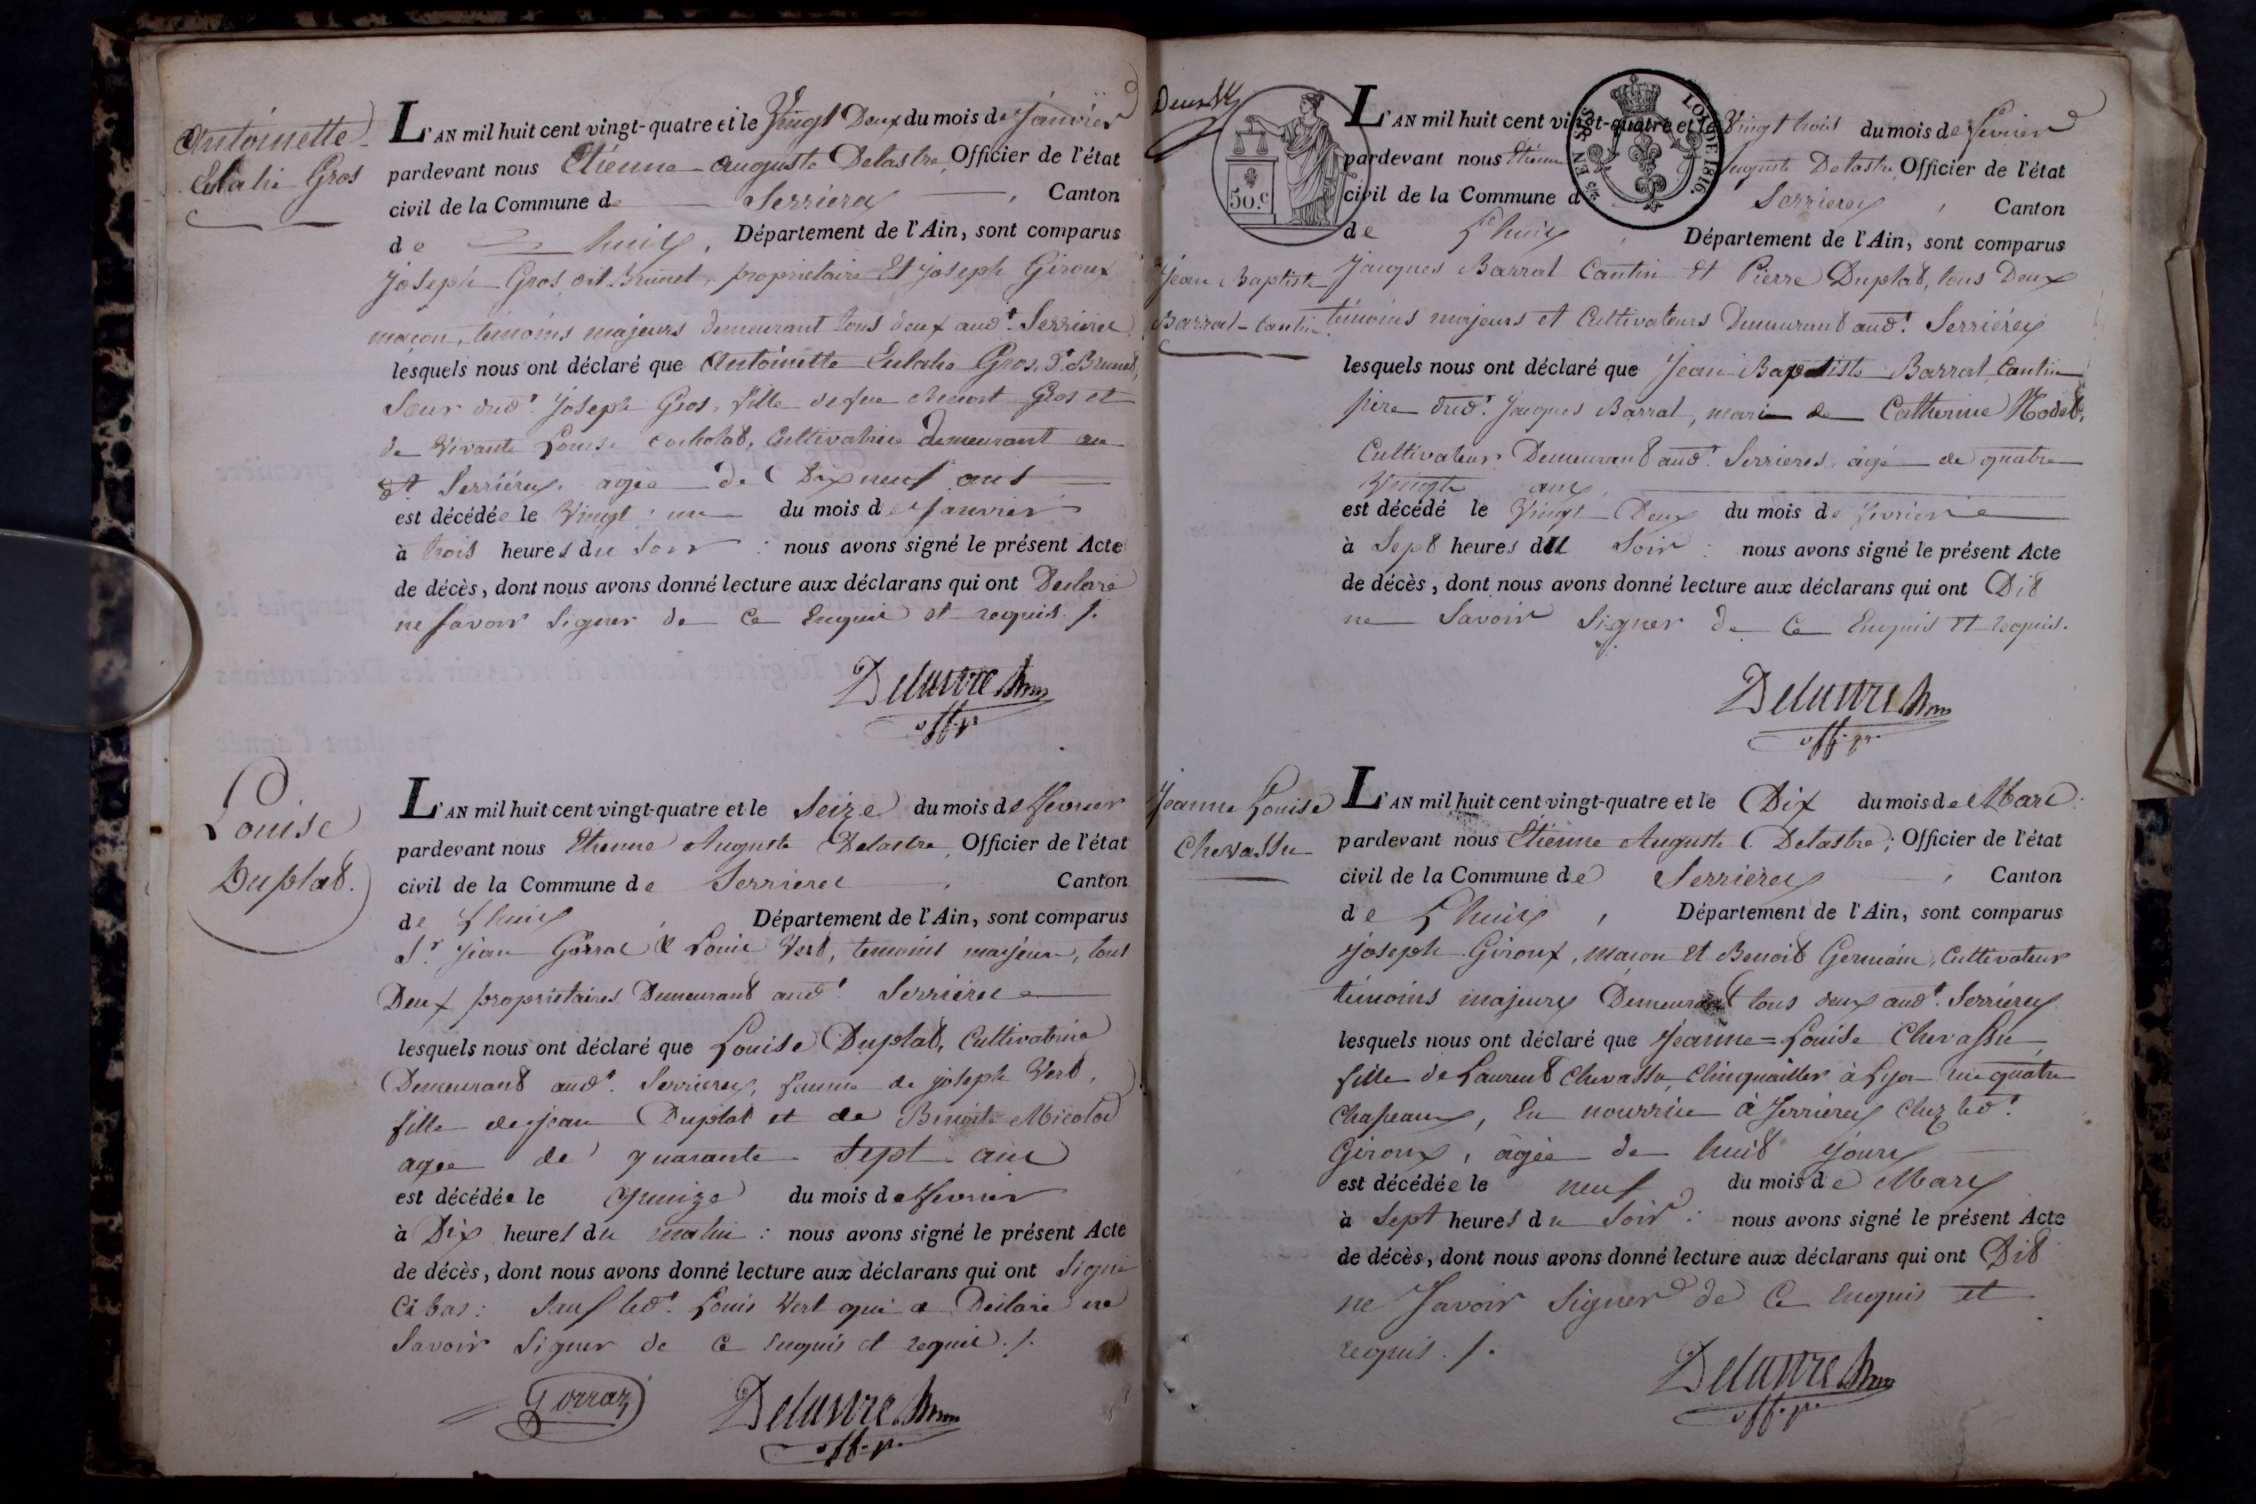 Antoinette
Eulalie Gros
L'AN mil huit cent vingt-quatre et le Vingt Deux du mois de Janvier
pardevant nous Etienne Auguste Delastre, Officier de l'état
civil de la Commune de Serrieres, Canton
de Lhuis, Département de l'Ain, sont comparus
Joseph Gros dit Brunet, proprietaire Et Joseph Giroux
maçon, témoins majeurs demeurant tous deux aud.t Serrieres
lesquels nous ont déclaré que Antoinette Eulalie Gros, d.t Brunet,
Sœur dud.t Joseph Gros, fille de feu Benoit Gros et
de Vivante Louise Cocholat, Cultivatrice demeurant au
d.t Serriéres, agée de Dix neuf ans
est décédée le Vingt un du mois de Janvier
à trois heures du Soir : nous avons signé le présent Acte
de décès, dont nous avons donné lecture aux déclarans qui ont Declaré
ne Savoir Signer de Ce Enquis et requis ./.
Delastre
off. p.
Louise
Duplat.
L'AN mil huit cent vingt-quatre et le Seize du mois de Fevrier
pardevant nous Etienne Auguste Delastre, Officier de l'état
civil de la Commune de Serrieres, Canton
de Lhuis, Département de l'Ain, sont comparus
S.r Jean Gorraz & Louis Vert, temoins majeurs, tous
Deux proprietaires Demeurant aud.t Serriéres
lesquels nous ont déclaré que Louise Duplat, Cultivatrice
Demeurant aud.t Serrieres, femme de joseph Vert,
fille de jean Duplat et de Benoite Micolod
agee de quarante Sept ans
est décédée le quinze du mois de Fevrier
à Dix heures du matin : nous avons signé le présent Acte
de décès, dont nous avons donné lecture aux déclarans qui ont Signé
Ci bas : Sauf led.t Louis Vert qui a Déclaré ne
Savoir Signer de Ce Enquis et requis ./.
Gorraz Delastre
off. p.
Deux
50.c
LOI DE 1816.
Jean Baptiste
Barral-Cantin
L'AN mil huit cent vingt-quatre et le Vingt trois du mois de Fevrier
pardevant nous Etienne Auguste Delastre, Officier de l'état
civil de la Commune de Serrieres, Canton
de Lhuis, Département de l'Ain, sont comparus
Jacques Barral Cantin Et Pierre Duplat, tous Deux
témoins majeurs et Cultivateurs Demeurant aud.t Serriéres
lesquels nous ont déclaré que Jean Baptiste Barral Cantin
père dud.t Jacques Barral, mari de Catherine Rodet,
Cultivateur Demeurant aud.t Serrieres, âgé de quatre
Vingts ans,
est décédé le Vingt Deux du mois de Fevrier
à Sept heures du Soir : nous avons signé le présent Acte
de décès, dont nous avons donné lecture aux déclarans qui ont Dit
ne Savoir Signer de Ce Enquis Et requis.
Delastre
off. p.
Jeanne Louise
Chevassu
L'AN mil huit cent vingt-quatre et le Dix du mois de Mars
pardevant nous Etienne Auguste Delastre, Officier de l'état
civil de la Commune de Serrieres, Canton
de Lhuis, Département de l'Ain, sont comparus
Joseph Giroux, maçon Et Benoit Germain, Cultivateur
témoins majeurs Demeurant tous deux aud.t Serriéres
lesquels nous ont déclaré que Jeanne=Louise Chevassu
fille de Laurent Chevassu, Clinquailler à Lyon rue quatre
Chapeaux, En nourrice à Serrieres Chez led.t
Giroux, âgée de huit jours
est décédée le neuf du mois de Mars
à Sept heures du Soir : nous avons signé le présent Acte
de décès, dont nous avons donné lecture aux déclarans qui ont Dit
ne Savoir Signer de Ce Enquis et
requis ./.
Delastre
off. p.